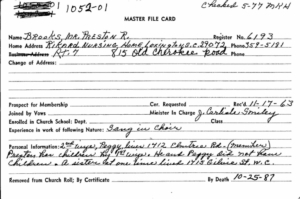 1052-01
Checked 5-77 MKH
MASTER FILE CARD
Name Brooks, Mr. Preston R. Register No. 6193
Home Address Rikard Nursing Home Lexington S.C. 29072 Phone 359-5181
Business Address Rt. 7 815 Old Cherokee Road Phone
Change of Address:
Prospect for Membership Cur. Requested Rec'd 11-17-63
Joined by Vows Minister In Charge J. Carlisle Smiley
Enrolled in Church School: Dept. Class
Experience in work of following Nature: Sang in Choir
Personal Information: 2nd wife, Peggy lives 1412 Rd. (member)
Preston has children by 1st wife. He and Peggy did not have
children. A sister at one time lived 1415 St. W.C.
Removed from Church Roll; By Certificate By Death 10-25-87